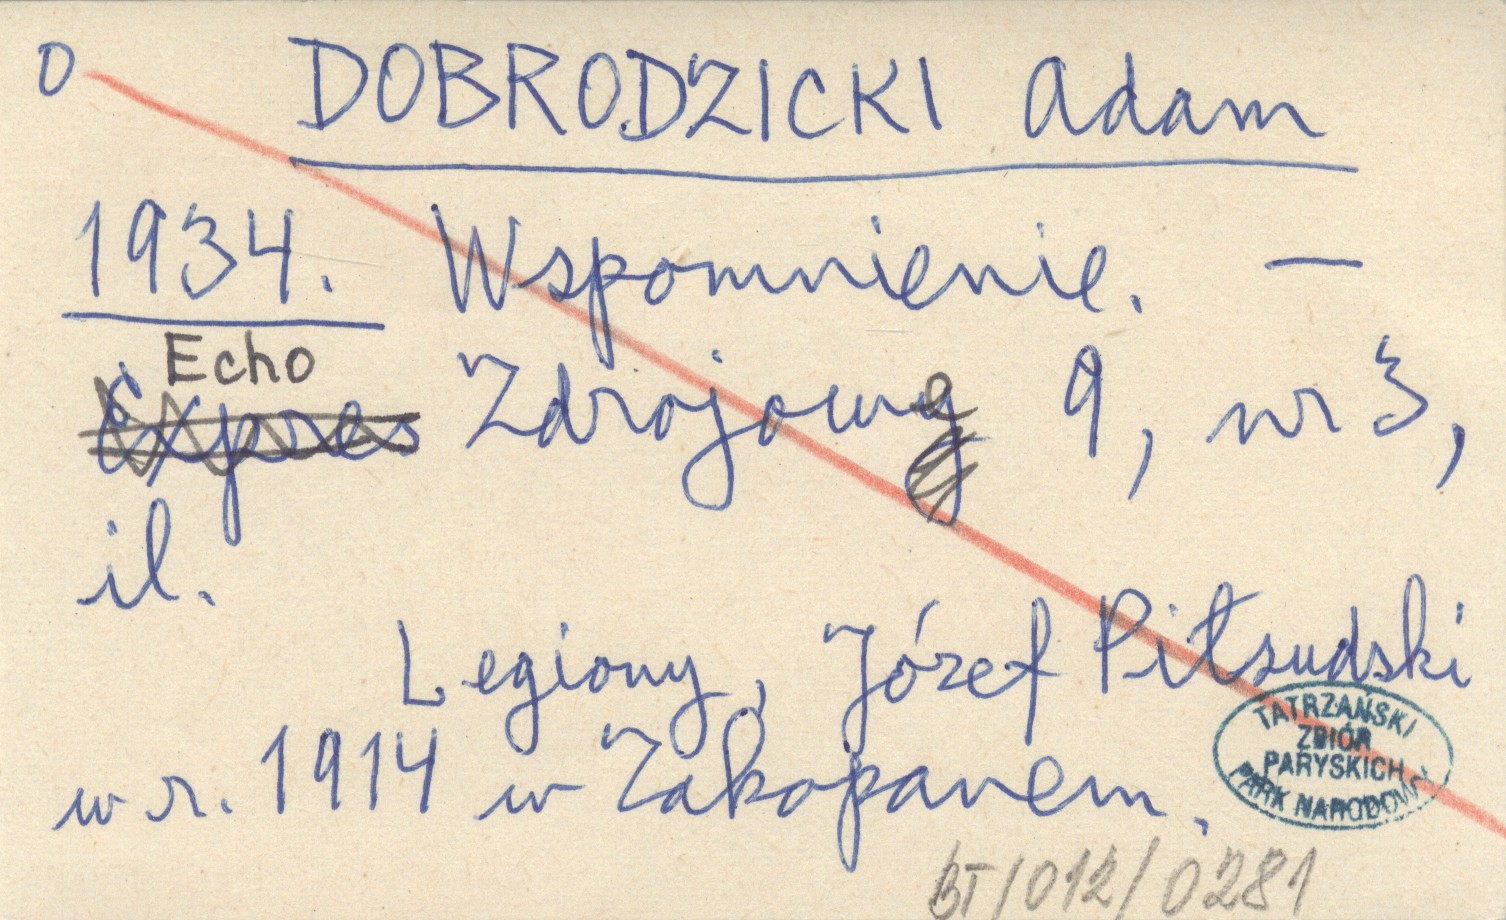 O
DOBRODZICKI Adam
1934. Wspomnienie. —
Echo
Expres Zdrojowe 9, nr 3,
il.
Legiony, Józef Piłsudski
w r. 1914 w Zakopanem.
TATRZAŃSKI
ZBIÓR
PARYSKICH
PARK NARODOWY
BT/012/0281